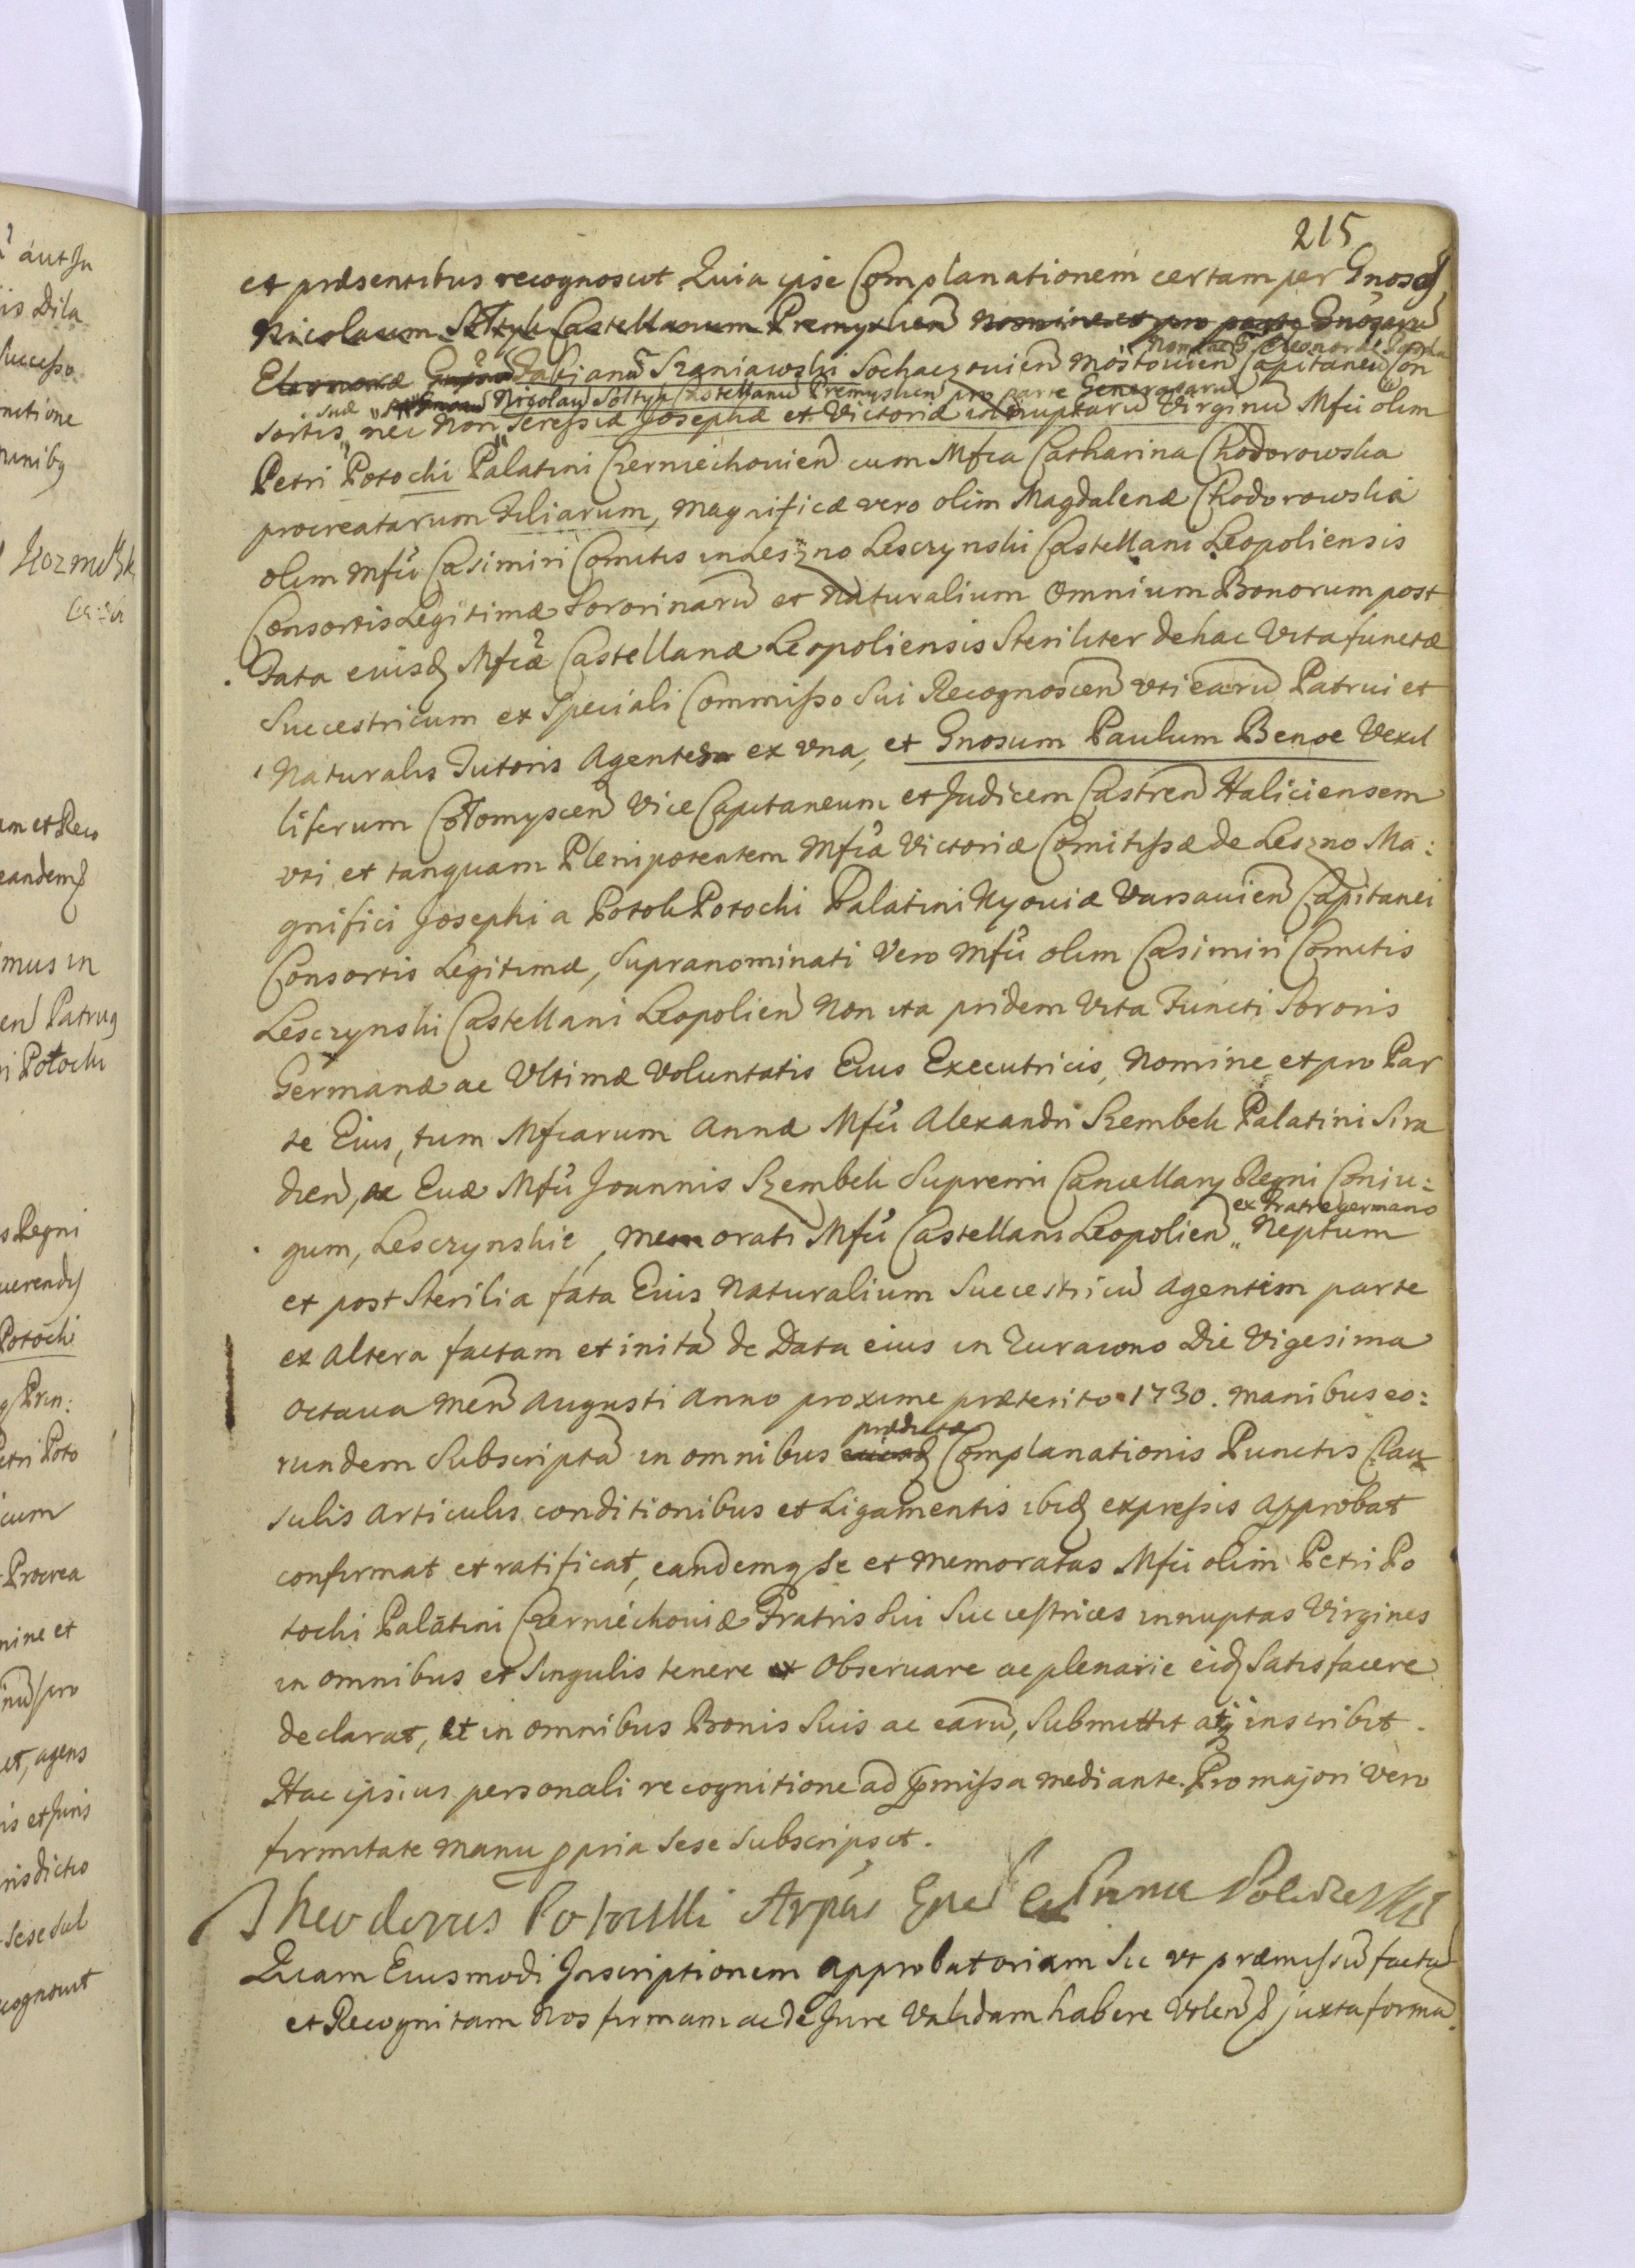 215
et præsentibus recognoscit Quia ipse Complanationem certam per Gnosos
Nicolaum Sołtyk Castellanum Premyslien nomine et pro parte Gnosarū
Nomine Eleonoræ
Eleonoræ Fabianū Szaniawski Sochaczouien Mostouien Capitaneū Con
suæ Nicolaū Sołtyk Castellanū Premyslien pro parte Generosarū
sortis nec non Teressiæ Josephæ et Victoriæ innuptarū Virginū Mfci olim
Petri Potocki Palatini Czerniechouien cum Mfca Catharina Chodorowska
procreatarum Filiarum, Magnificæ vero olim Magdalenæ Chodorowska
olim Mfci Casimiri Comitis in Leszno Lesczynski Castellani Leopoliensis
Consortis Legitimæ Sororinarū et Naturalium Omnium Bonorum post
Fata eiusdꝫ Mfcæ Castellanæ Leopoliensis Steriliter de hac Vita functæ
Succestricum ex Speciali Commisso Sui Recognoscen vti earū Patrui et
Naturalis Tutoris Agentem ex vna, et Gnosum Paulum Benoe Vexil
liferum Cołomyscen Vice Capitaneum et Judicem Castren Haliciensem
vti et tanquam Plenipotentem Mfcæ Victoriæ Comitissæ de Leszno Ma:
gnifici Josephi a Potok Potocki Palatini Kyouiæ Varsauien Capitanei
Consortis Legitimæ, Supranominati Vero Mfci olim Casimiri Comitis
Lesczynski Castellani Leopolien Non ita pridem Vita Functi Sororis
Germanæ ac Vltimæ Voluntatis Eius Executricis, Nomine et pro Par
te Eius, tum Mfcarum Annæ Mfci Alexandri Szembek Palatini Sira
dien, ac Euæ Mfci Joannis Szembek Supremi Cancellarij Regni Coniu:
ex Fratre germano
gum, Lesczynskie, Memorati Mfci Castellani Leopolien Neptum
et post Sterilia fata Eius Naturalium Succestricū Agentem parte
ex Altera factam et initā de Data eius in Zurawno Die Vigesima
Octaua Men Augusti Anno proxime præterito 1730. manibus eo:
prædictæ
rundem Subscriptā in omnibus eiusdꝫ Complanationis Punctis Clau
sulis Articulis conditionibus et Ligamentis ibidꝫ expressis Approbat
confirmat et ratificat, eandemqꝫ Se et Memoratas Mfci olim Petri Po
tocki Palatini Czerniechouiæ Fratris Sui Succestrices innuptas Virgines
in omnibus et Singulis tenere et Obseruare ac plenarie eidꝫ Satisfacere
declarat, et in omnibus Bonis Suis ac earū, Submittit atqꝫ inscribit.
Hac ipsius personali recognitione ad pmissa mediante. Pro majori vero
firmitate manu ppria Sese Subscripsit.
Theodorus Potocki
Quam Eiusmodi Inscriptionem approbatoriam Sic vt præmissū factā
et Recognitam Nos firmam ac de Jure Validam habere Volen juxta formā